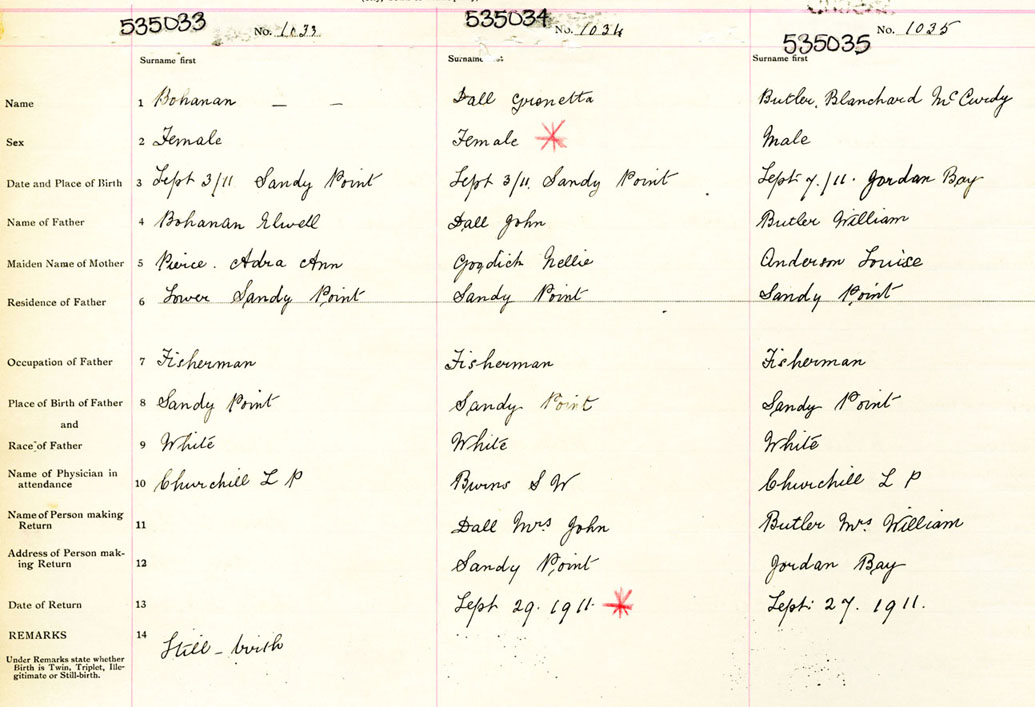 535033 No. 1033
535034 No. 1034
535035 No. 1035
Surname first Surname first
Surname first
Name 1 Bohanan — — Dall Gronetta Butler, Blanchard McCurdy
Sex 2 Female Female Male
Date and Place of Birth 3 Sept 3/11 Sandy Point Sept 3/11. Sandy Point Sept 7./11. Jordan Bay
Name of Father 4 Bohanan Elwell Dall John Butler William
Maiden Name of Mother 5 Pierce. Adra Ann Goodick Nellie Anderson Louise
Residence of Father 6 Lower Sandy Point Sandy Point Sandy Point
Occupation of Father 7 Fisherman Fisherman Fisherman
Place of Birth of Father 8 Sandy Point Sandy Point Sandy Point
and
Race of Father 9 White White White
Name of Physician in
attendance 10 Churchill L P Burns S W Churchill L P
Name of Person making
Return 11 Dall Mrs John Butler Mrs William
Address of Person mak-
ing Return 12 Sandy Point Jordan Bay
Date of Return 13 Sept 29. 1911. Sept. 27. 1911.
REMARKS 14 Still - birth
Under Remarks state whether
Birth is Twin, Triplet, Ille-
gitimate or Still-birth.